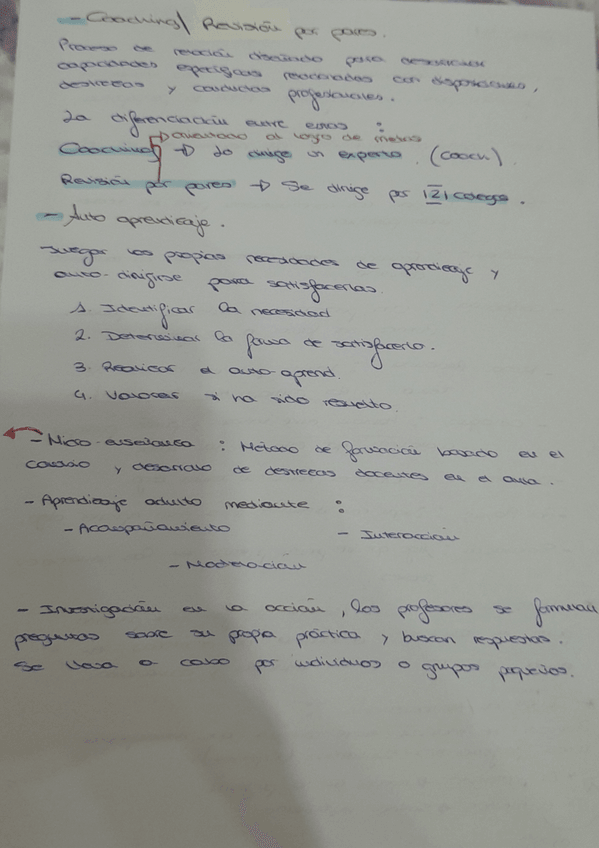 - Coaching / Revisión por pares.
Proceso de relación diseñado para desarrollar
capacidades específicas relacionadas con disposiciones,
destrezas y conductas profesionales.
La diferenciación entre estas :
orientado al logro de metas
Coaching → Lo dirige un experto. (Coach).
Revisión por pares → Se dirige por 2 colegas.
- Auto aprendizaje.
Juzgar las propias necesidades de aprendizaje y
auto-dirigirse para satisfacerlas.
1. Identificar la necesidad
2. Determinar la forma de satisfacerlo.
3. Realizar el auto-aprend.
4. Valorar si ha sido resuelto.
- Micro-enseñanza : Método de formación basado en el
cambio y desarrollo de destrezas docentes en el aula.
- Aprendizaje adulto mediante :
- Acompañamiento - Interacción
- Moderación
- Investigación en la acción, los profesores se formulan
preguntas sobre su propia práctica y buscan respuestas.
Se lleva a cabo por individuos o grupos pequeños.